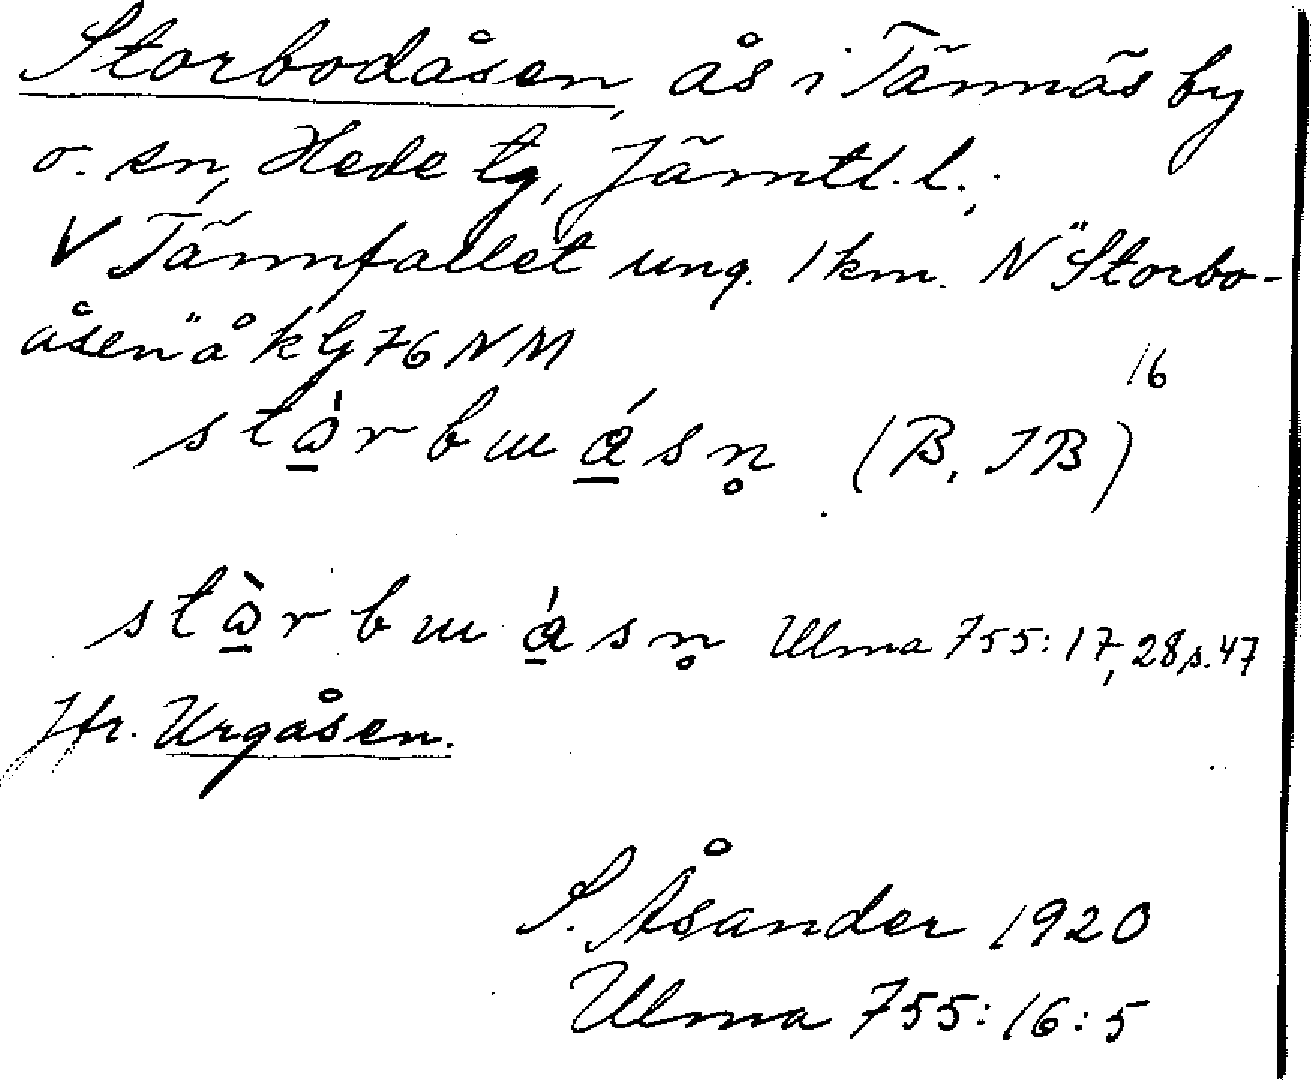 Storbodåsen, ås i Tännäs by
o. sn, Hede tg, Jämtl. l.;
V Tännfallet ung. 1 km. N "Storbo-
åsen" å k G 76 NM
16
(B, JB)
Ulma 755: 17, 28 s. 47
Jfr. Urgåsen.
S. Åsander 1920
Ulma 755: 16: 5